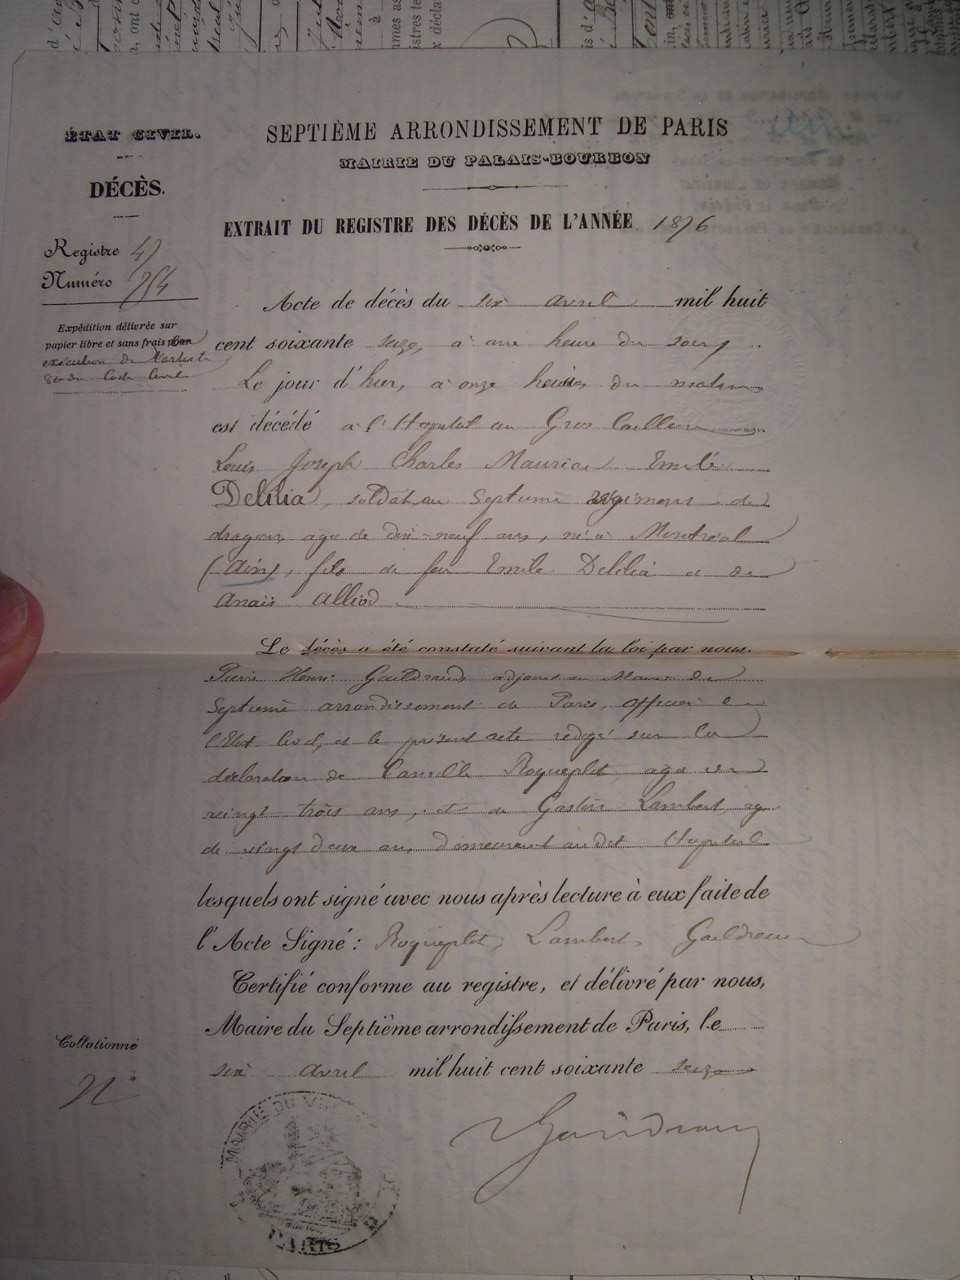 ÉTAT CIVIL.
DÉCÈS.
Registre 47
Numéro 754
Expédition délivrée sur
papier libre et sans frais pour
exécution de l'article
Code Civil
SEPTIÈME ARRONDISSEMENT DE PARIS
MAIRIE DU PALAIS-BOURBON
EXTRAIT DU REGISTRE DES DÉCÈS DE L'ANNÉE 1876
Acte de décès du six avril mil huit
cent soixante seize, à une heure du soir
Le jour d'hier, à onze heures du matin
est décédé à l'Hopital au Gros Caillou
Louis Joseph Charles Maurice Emile
Delilia, soldat au Septième régiment de
dragons, agé de dix-neuf ans, né à Montréal
(Ain), fils de feu Emile Delilia et de
Anaïs Alliod
Le décès a été constaté suivant la loi par nous.
Pierre Henri adjoint au Maire du
Septième arrondissement de Paris, officier de
l'Etat Civil, et le présent acte rédigé sur la
déclaration de Camille Roqueplot, agé de
vingt trois ans, et de Gaston Lambert, agé
de vingt deux ans, demeurant audit Hopital
lesquels ont signé avec nous après lecture à eux faite de
l'Acte Signé: Roqueplot, Lambert,
Certifié conforme au registre, et délivré par nous,
Maire du Septième arrondissement de Paris, le
six avril mil huit cent soixante seize
Collationné
MAIRIE DU
PARIS